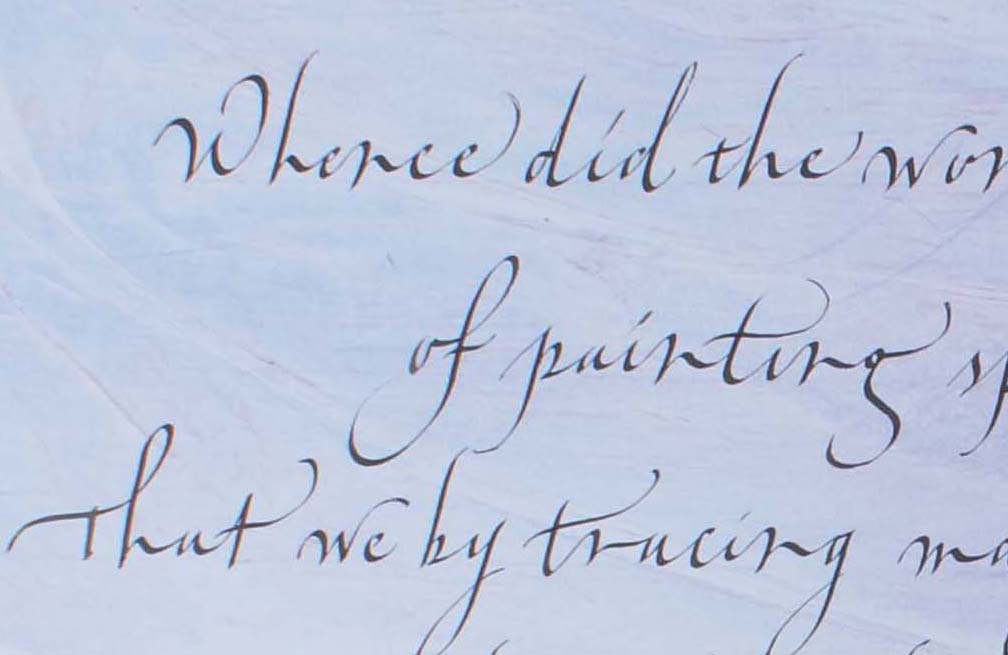 Whence did the wo
of painting
That we by tracing